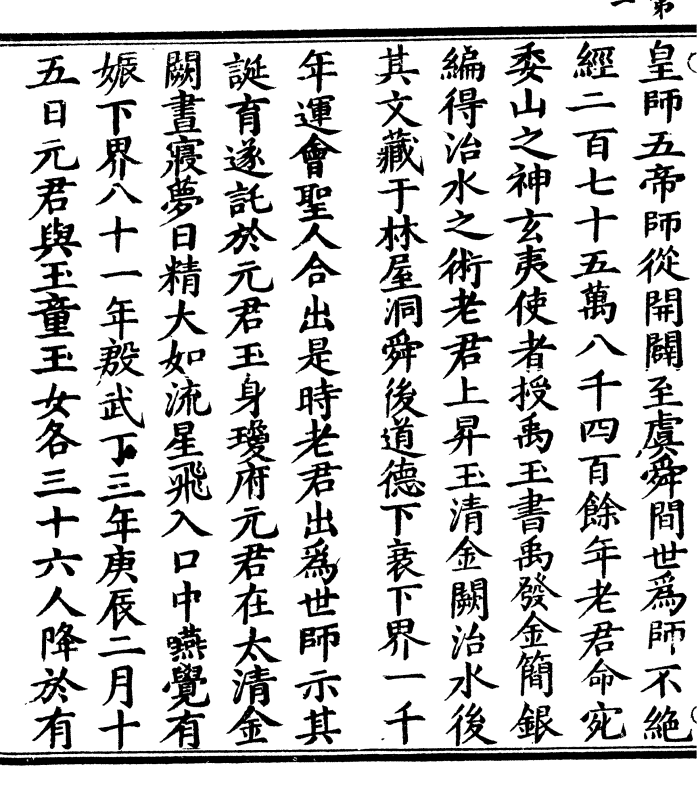 皇師五帝師從開闢至虞舜間世爲師不絕
經二百七十五萬八千四百餘年老君命宛
委山之神玄夷使者授禹玉書禹發金簡銀
編得治水之術老君上昇玉清金闕治水後
其文藏于林屋洞舜後道德下衰下界一千
年運會聖人合出是時老君出爲世師示其
誕育遂託於元君玉身瓊府元君在太清金
闕晝寢夢日精大如流星飛入口中嚥覺有
娠下界八十一年殷武丁三年庚辰二月十
五日元君與玉童玉女各三十六人降於有